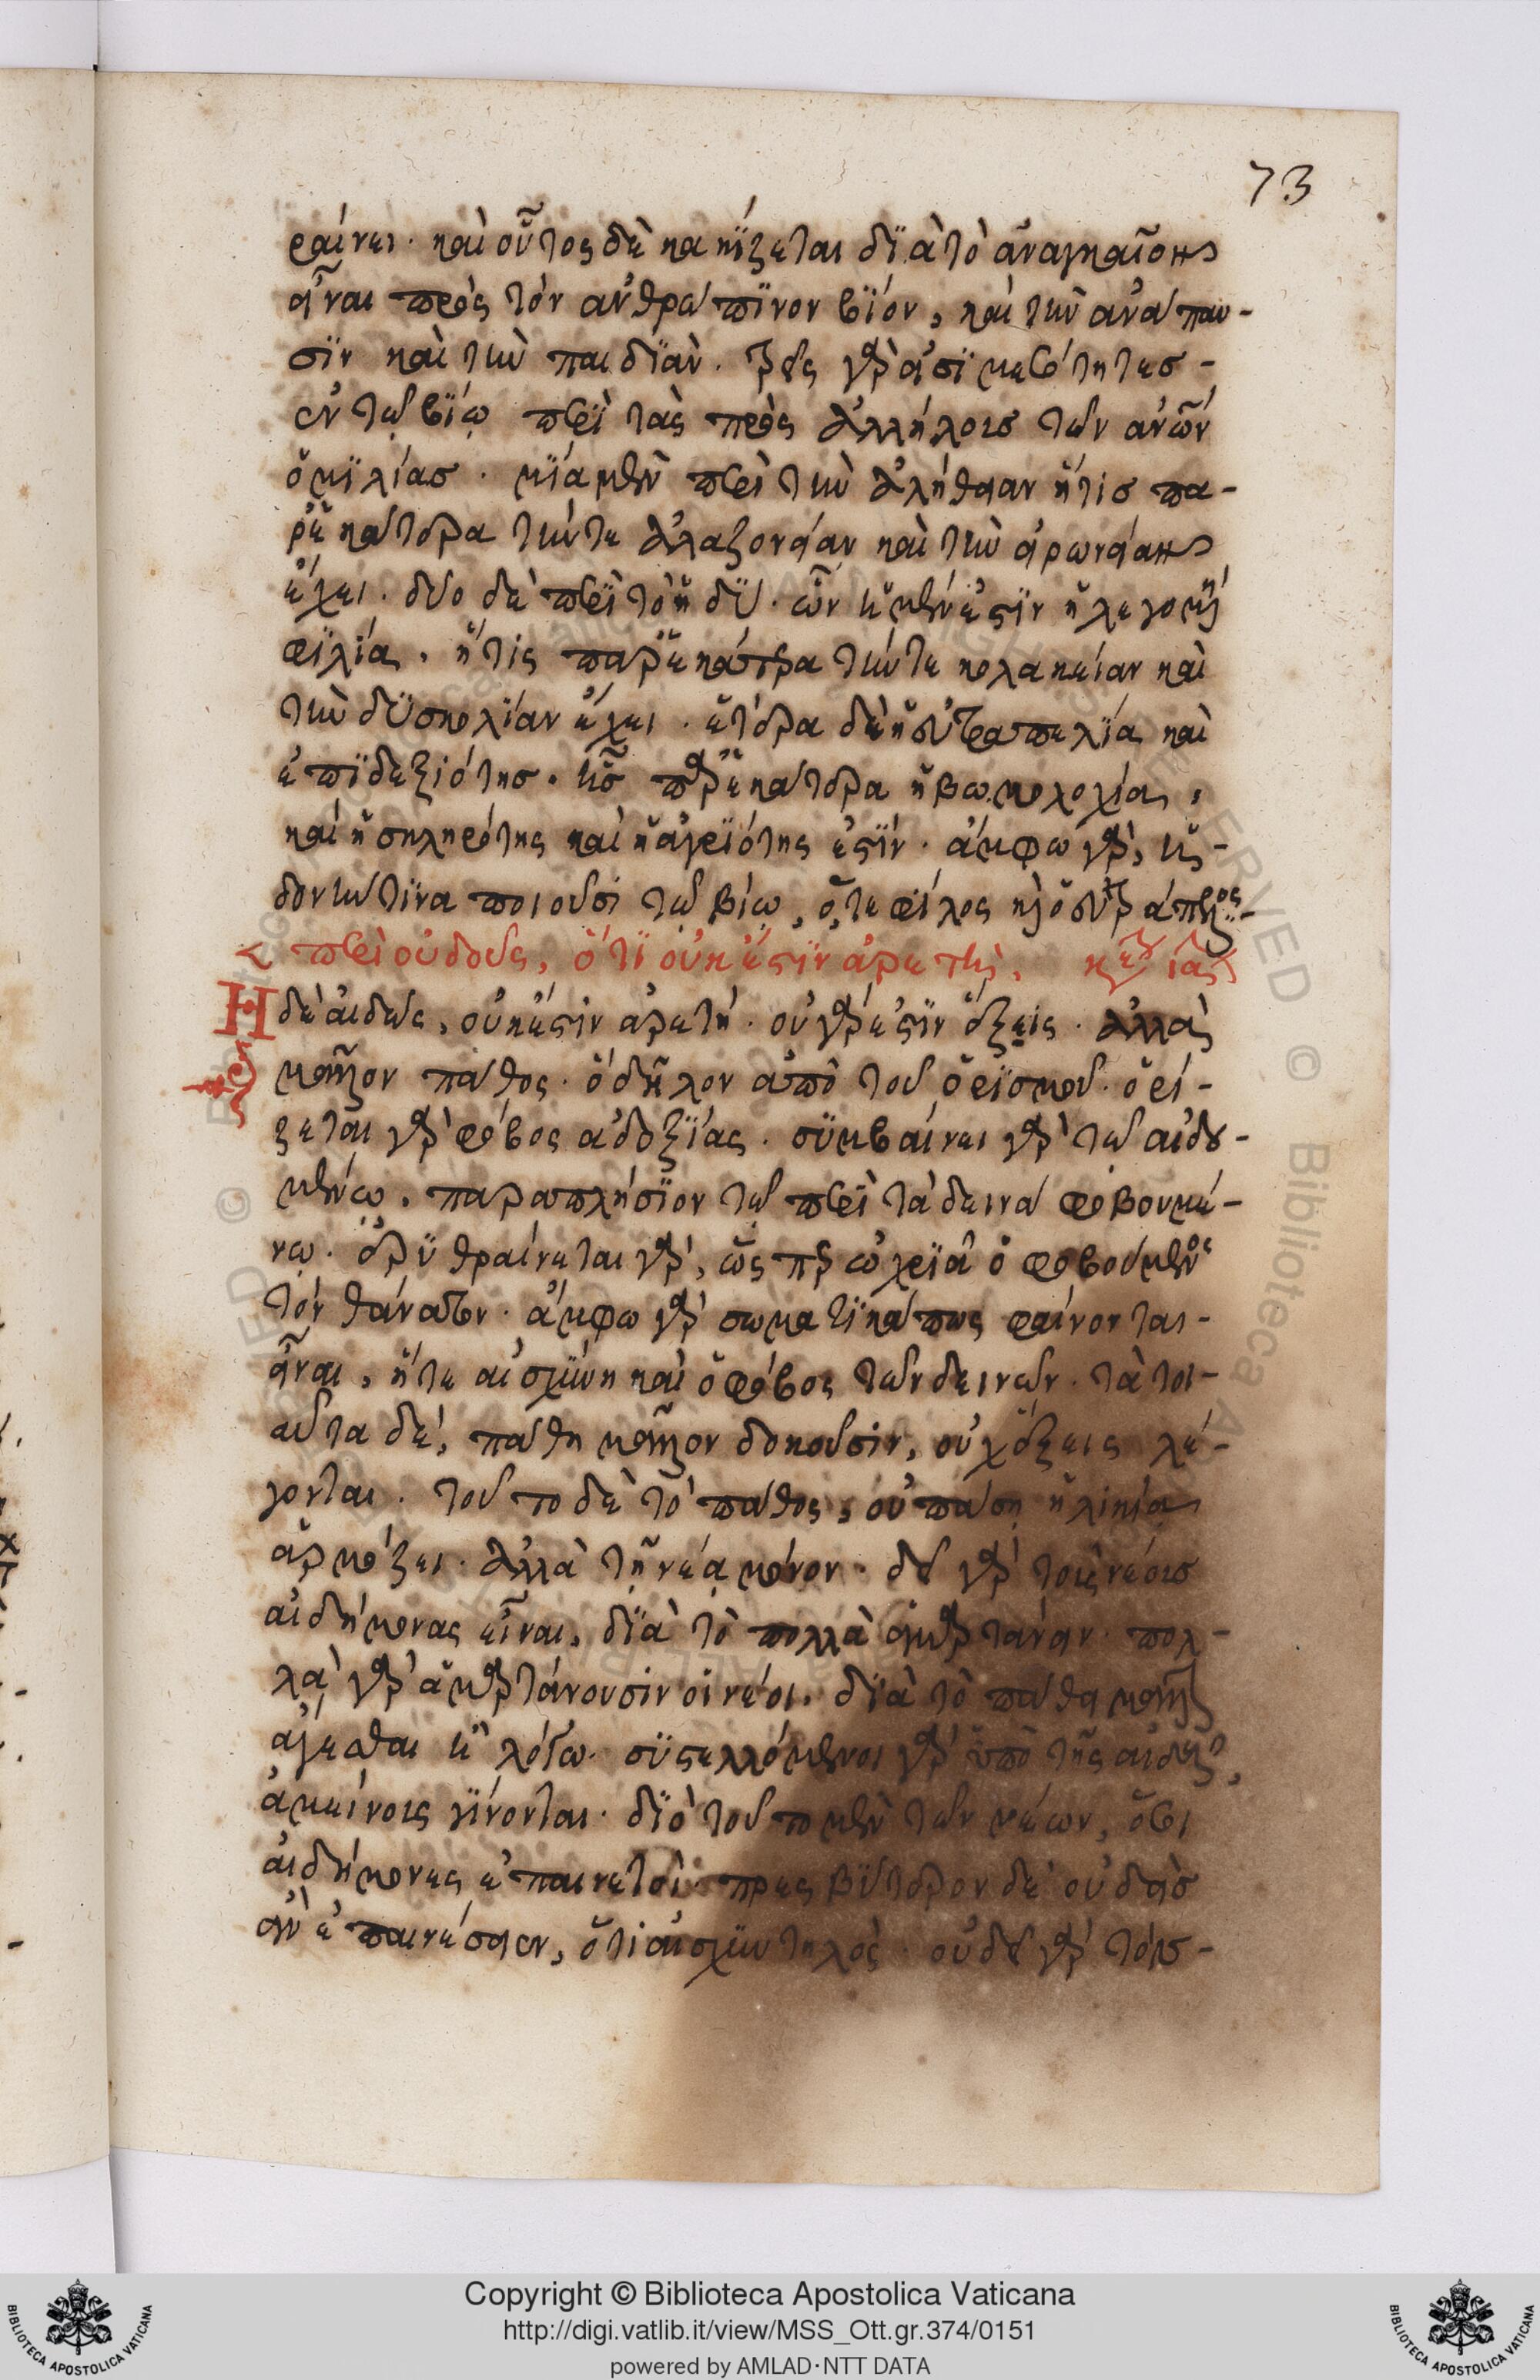 73
ραίνει. καὶ οὗτος δὲ κακίζεται δϊὰ τὸ ἀναγκαῖον
εἶναι πρὸς τὸν ἀνθρώπϊνον βϊόν, καὶ τὴν ἀνάπαυ-
σϊν καὶ τὴν παιδϊάν. τρεῖς γὰρ εἰσϊ μεσότητεσ -
ἐν τῷ βϊῳ περὶ τὰς πρὸς ἀλλήλοισ τῶν ἀνῶν
ὁμϊλίασ. μϊα μὲν περὶ τὴν ἀλήθειαν ἥτισ πα-
ρ' ἑκάτερα τήν τε ἀλαζονείαν καὶ τὴν εἰρωνείαν
ἔχει. δύο δὲ περὶ τὸ ἡδϋ. ὧν ἡ μὲν ἐστϊν ἡ λεγομένη
φϊλία. ἥτις παρ' ἑκάτερα τήν τε κολακείαν καὶ
τὴν δϋσκολίαν ἔχει. ἑτέρα δὲ ἡ εὐτραπελϊα καὶ
ἐπϊδεξιότησ. ἧσ παρ' ἑκάτερα ἡ βωμολοχία,
καὶ ἡ σκληρότης καὶ ἡ ἀγρϊότης ἐστϊν. ἄμφω γὰρ, ἡ-
δονήν τϊνα ποιοῦσι τῷ βίῳ, ὅ τε φίλος καὶ ὁ εὐτράπελος -
περὶ αἰδοῦς, ὅτϊ οὐκ ἔστϊν ἀρετὴ.
Ηδὲ ἀιδὼς, οὐκ ἔστιν ἀρετή. οὐ γὰρ ἐστϊν ἕξεις. ἀλλὰ
μᾶλλον πάθος. ὁ δῆλον ἀπὸ τοῦ ὁρϊσμοῦ. ὁρί-
ζεται γὰρ φόβος ἀδοξϊας. σϋμβαίνει γὰρ τῷ αἰδου-
μένω. παραπλήσϊον τῷ περὶ τὰ δεινὰ φοβουμέ-
νῳ. ἐρϋθραίνεται γὰρ, ὥσπερ ὠχρϊᾶ ὁ φοβούμενος
τὸν θάνατον. ἄμφω γὰρ σωματϊκά πως φαίνονται -
εἶναι, ἥ τε αἰσχϋνη καὶ ὁ φόβος τῶν δεινῶν. τὰ τοι-
αῦτα δέ, πάθη μᾶλλον δοκοῦσιν, οὐχ ἕξεις λέ-
γονται. τοῦτο δὲ τὸ πάθος, οὐ πάσῃ ἡλικίᾳ
ἁρμόζει. ἀλλὰ τῇ νέᾳ μόνον. δεῖ γὰρ τοὺς νέουσ
αἰδήμονας εἶναι, δϊὰ τὸ πολλὰ ἁμαρτάνειν. πολ-
λὰ γὰρ ἁμαρτάνουσιν οἱ νέοι. δϊὰ τὸ πάθει μᾶλλον
ἄγεσθαι ἢ λόγω. σϋστελλόμενοι γὰρ ὑπὸ τῆς αἰδοῦς,
ἀμείνοις γϊνονται. δϊὸ τοῦτο μὲν τῶν νέων, ὅσοι
αἰδήμονες ἐπαινετοὶ. πρεσβϋτερον δὲ οὐδεὶσ
ἂν ἐπαινέσειεν, ὅτι αἰσχϋντηλὸς. οὐ δεῖ γὰρ τὸν -
Copyright © Biblioteca Apostolica Vaticana
http://digi.vatlib.it/view/MSS_Ott.gr.374/0151
powered by AMLAD·NTT DATA